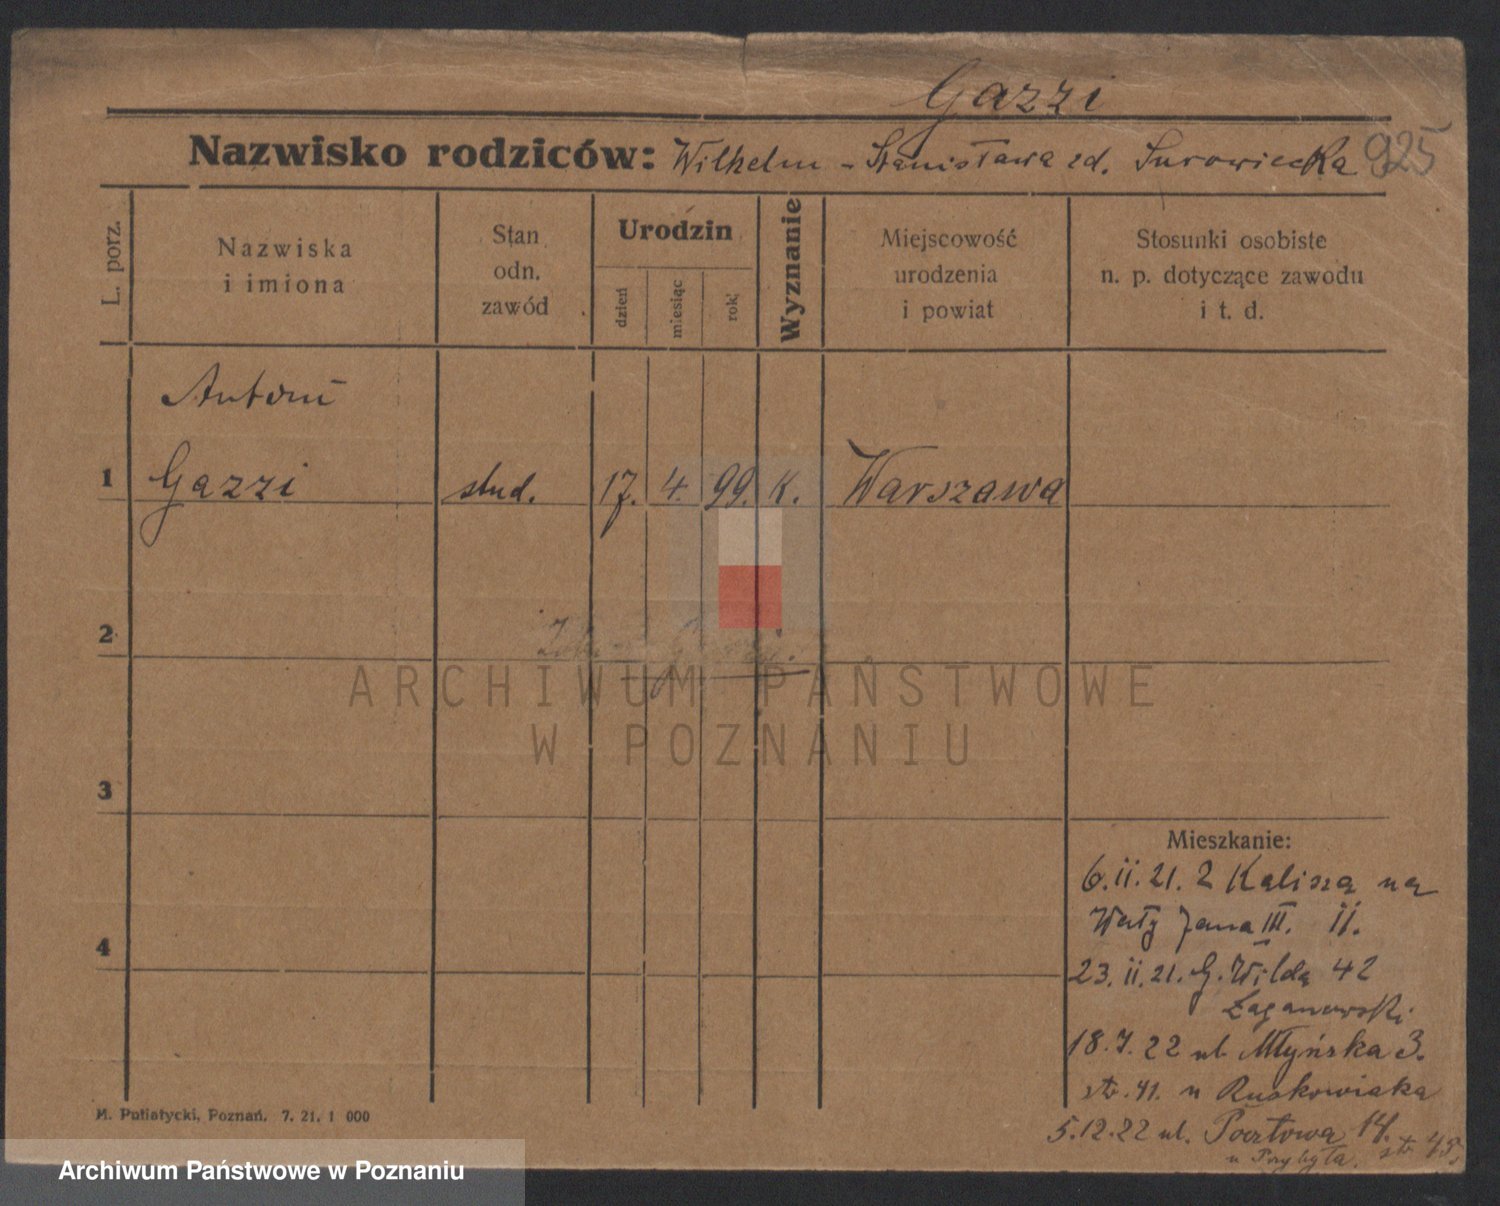 Gazzi
Nazwisko rodziców: Wilhelm - Stanisława zd. Surowiecka 925
L. porz.
Nazwiska
i imiona
Stan
odn.
zawód
Urodzin
dzień
miesiąc
rok
Wyznanie
Miejscowość
urodzenia
i powiat
Stosunki osobiste
n. p. dotyczące zawodu
i t. d.
Antoni
1 Gazzi stud. 17. 4. 99. K. Warszawa
2
ARCHIWUM PAŃSTWOWE
W POZNANIU
3
Mieszkanie:
6.II.21. z Kalisza na
Wały Jana III. II.
4
23.II.21. G. Wilda 42
Łaganowski
18.7.22 ul. Młyńska 3.
str. 41. u Ruskowiaka
5.12.22 ul. Pocztowa 14. str 45,
u Przybyła.
M. Putiatycki, Poznań. 7. 21. 1 000
Archiwum Państwowe w Poznaniu